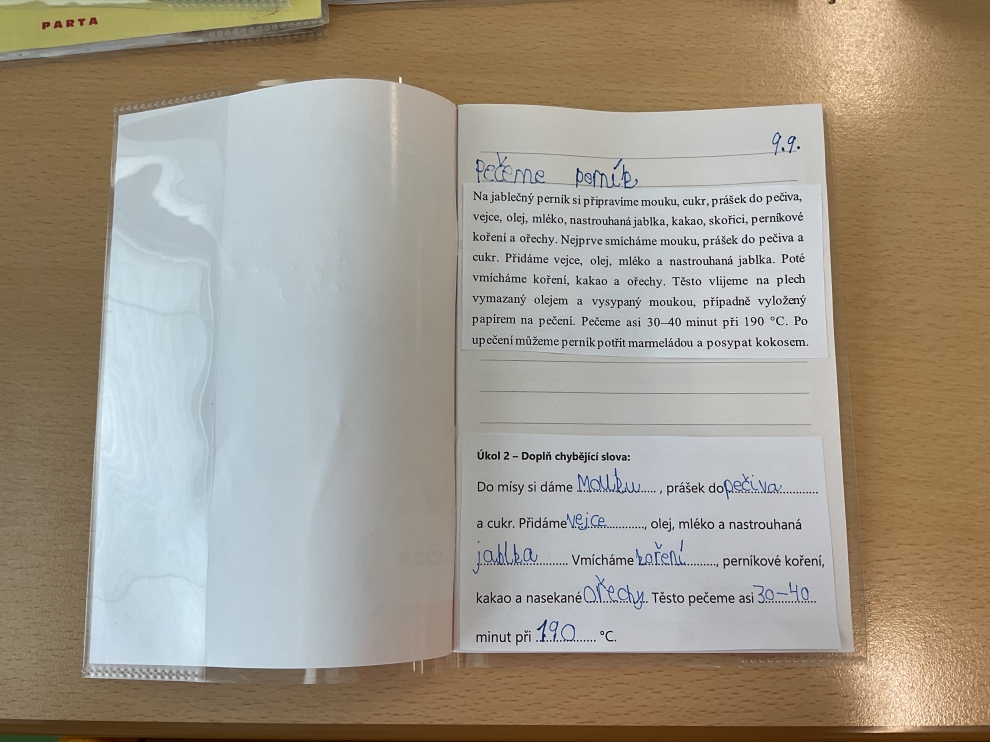 PARTA
9.9.
Pečeme perník
Na jablečný perník si připravíme mouku, cukr, prášek do pečiva,
vejce, olej, mléko, nastrouhaná jablka, kakao, skořici, perníkové
koření a ořechy. Nejprve smícháme mouku, prášek do pečiva a
cukr. Přidáme vejce, olej, mléko a nastrouhaná jablka. Poté
vmícháme koření, kakao a ořechy. Těsto vlijeme na plech
vymazaný olejem a vysypaný moukou, případně vyložený
papírem na pečení. Pečeme asi 30–40 minut při 190 °C. Po
upečení můžeme perník potřít marmeládou a posypat kokosem.
Úkol 2 – Doplň chybějící slova:
Do mísy si dáme mouku, prášek do pečiva
a cukr. Přidáme vejce, olej, mléko a nastrouhaná
jablka. Vmícháme koření, perníkové koření,
kakao a nasekané ořechy. Těsto pečeme asi 30–40
minut při 190 °C.